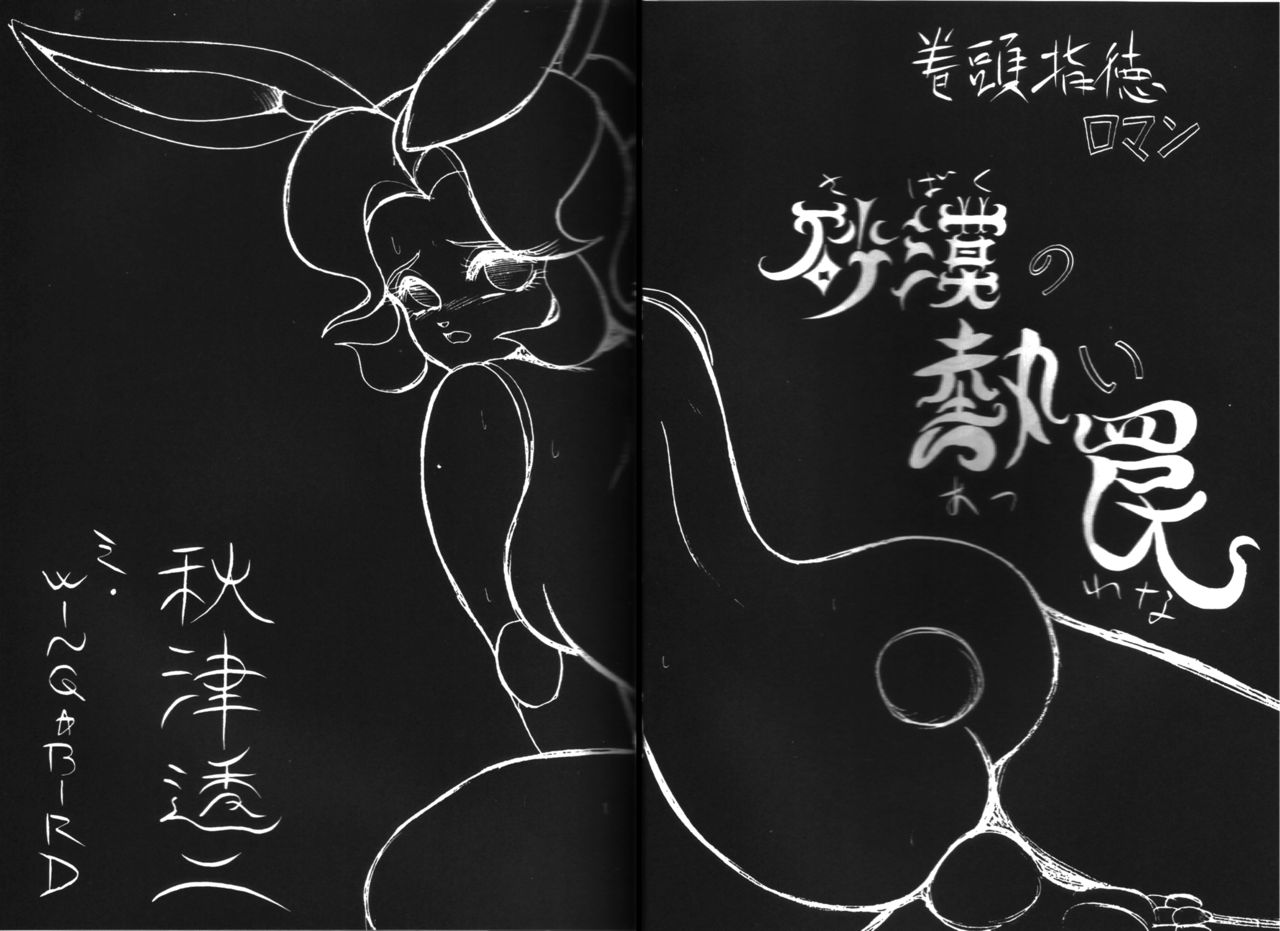 巻頭指徳
ロマン
さばく
砂漠の
熱い
あつ
罠
わな
秋津透二
ミ.WING☆BIRD